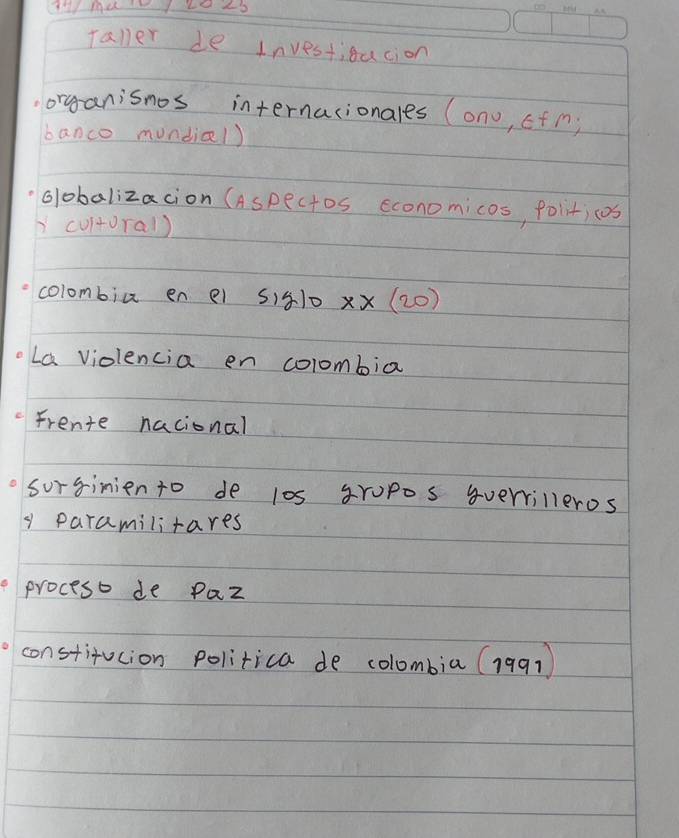 Taller de Investigacion
• organismos internacionales (onu, Efm;
banco mundial)
• Globalizacion (Aspectos Economicos, politicos
y cultural)
• colombia en el siglo xx (20)
• La violencia en colombia
• Frente nacional
• surginiento de los grupos guerrilleros
y paramilitares
• proceso de paz
• constitucion politica de colombia (1991)